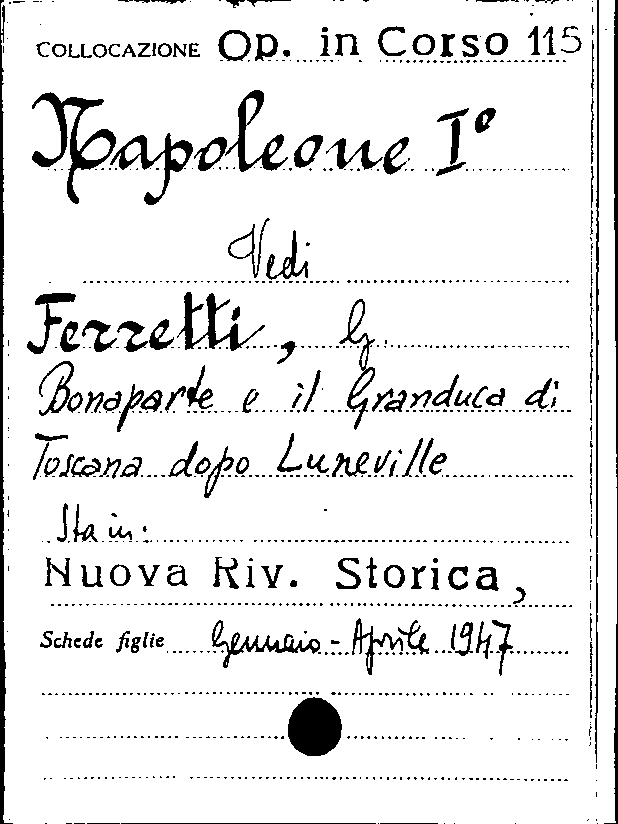 COLLOCAZIONE Op. in Corso 115
Napoleone I°
Vedi
Ferretti, G.
Bonaparte e il Granduca di
Toscana dopo Luneville
Sta in:
Nuova Riv. Storica,
Schede figlie Gennaio - Aprile 1947